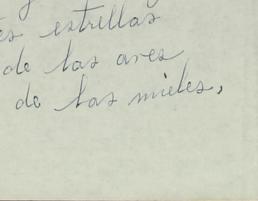 estrellas
de las aves
de las mieles,